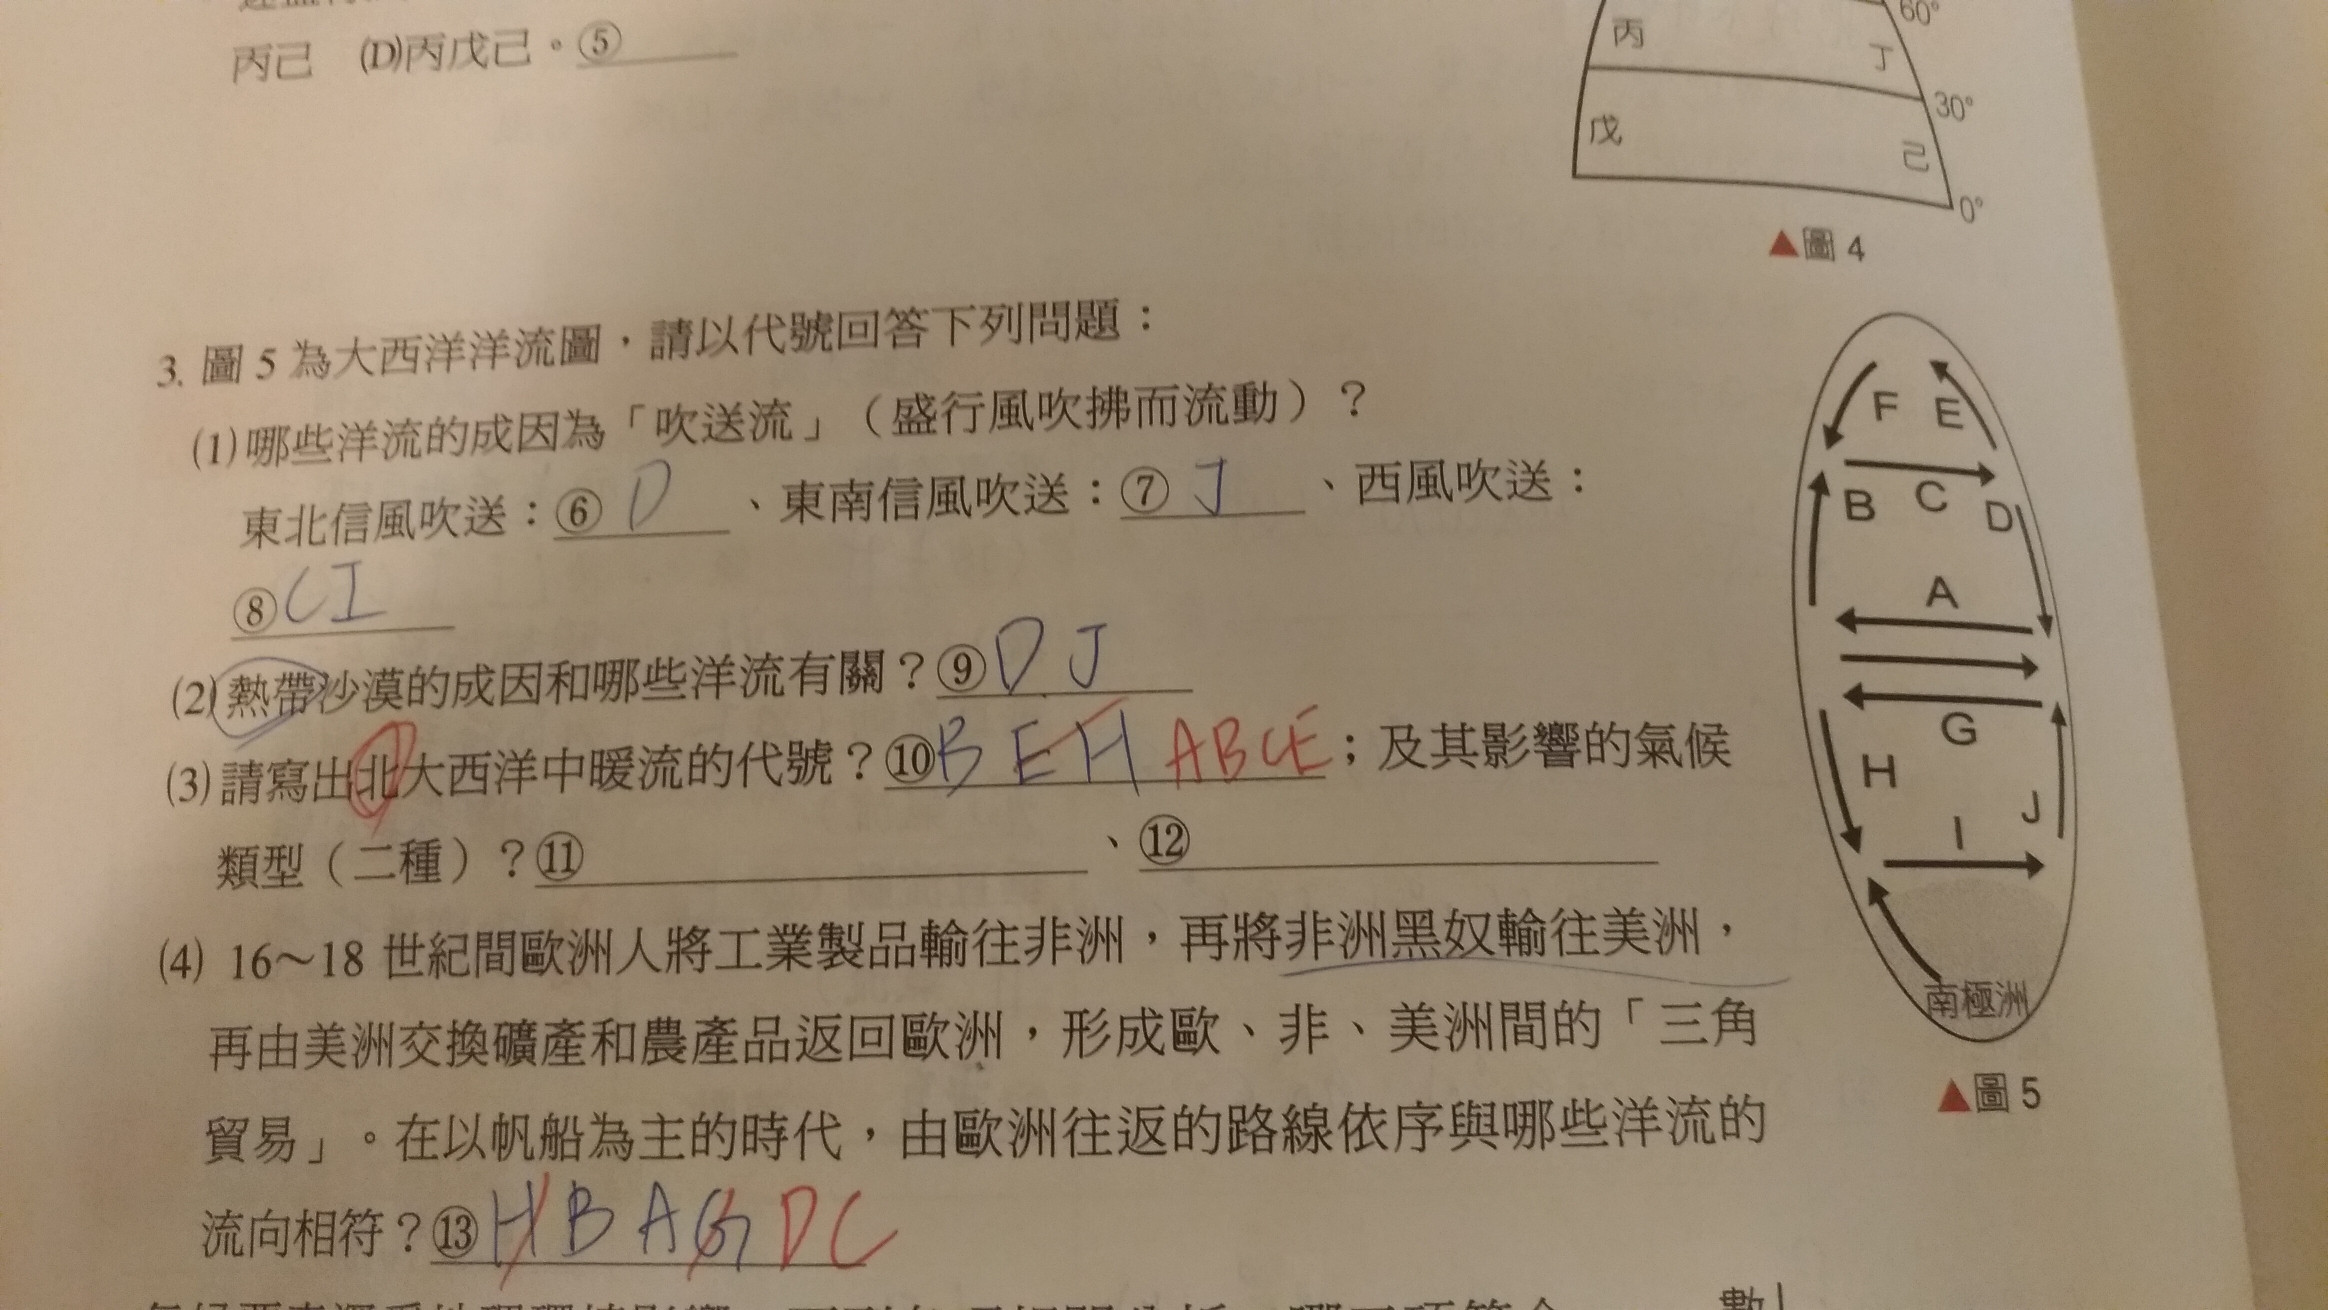 丙己 (D)丙戊己。⑤
丙
丁
60°
30°
戊
己
0°
▲圖 4
3. 圖 5 為大西洋洋流圖，請以代號回答下列問題：
(1) 哪些洋流的成因為「吹送流」（盛行風吹拂而流動）？
東北信風吹送：⑥ D 、東南信風吹送：⑦ J 、西風吹送：
⑧ C I
(2) 熱帶沙漠的成因和哪些洋流有關？⑨ D J
(3) 請寫出北大西洋中暖流的代號？⑩ B E H A B C E ；及其影響的氣候
類型（二種）？⑪ 、⑫
(4) 16～18 世紀間歐洲人將工業製品輸往非洲，再將非洲黑奴輸往美洲，
再由美洲交換礦產和農產品返回歐洲，形成歐、非、美洲間的「三角
貿易」。在以帆船為主的時代，由歐洲往返的路線依序與哪些洋流的
流向相符？⑬ H B A G D C
F E
B C D
A
G
H
I
J
南極洲
▲圖 5
數